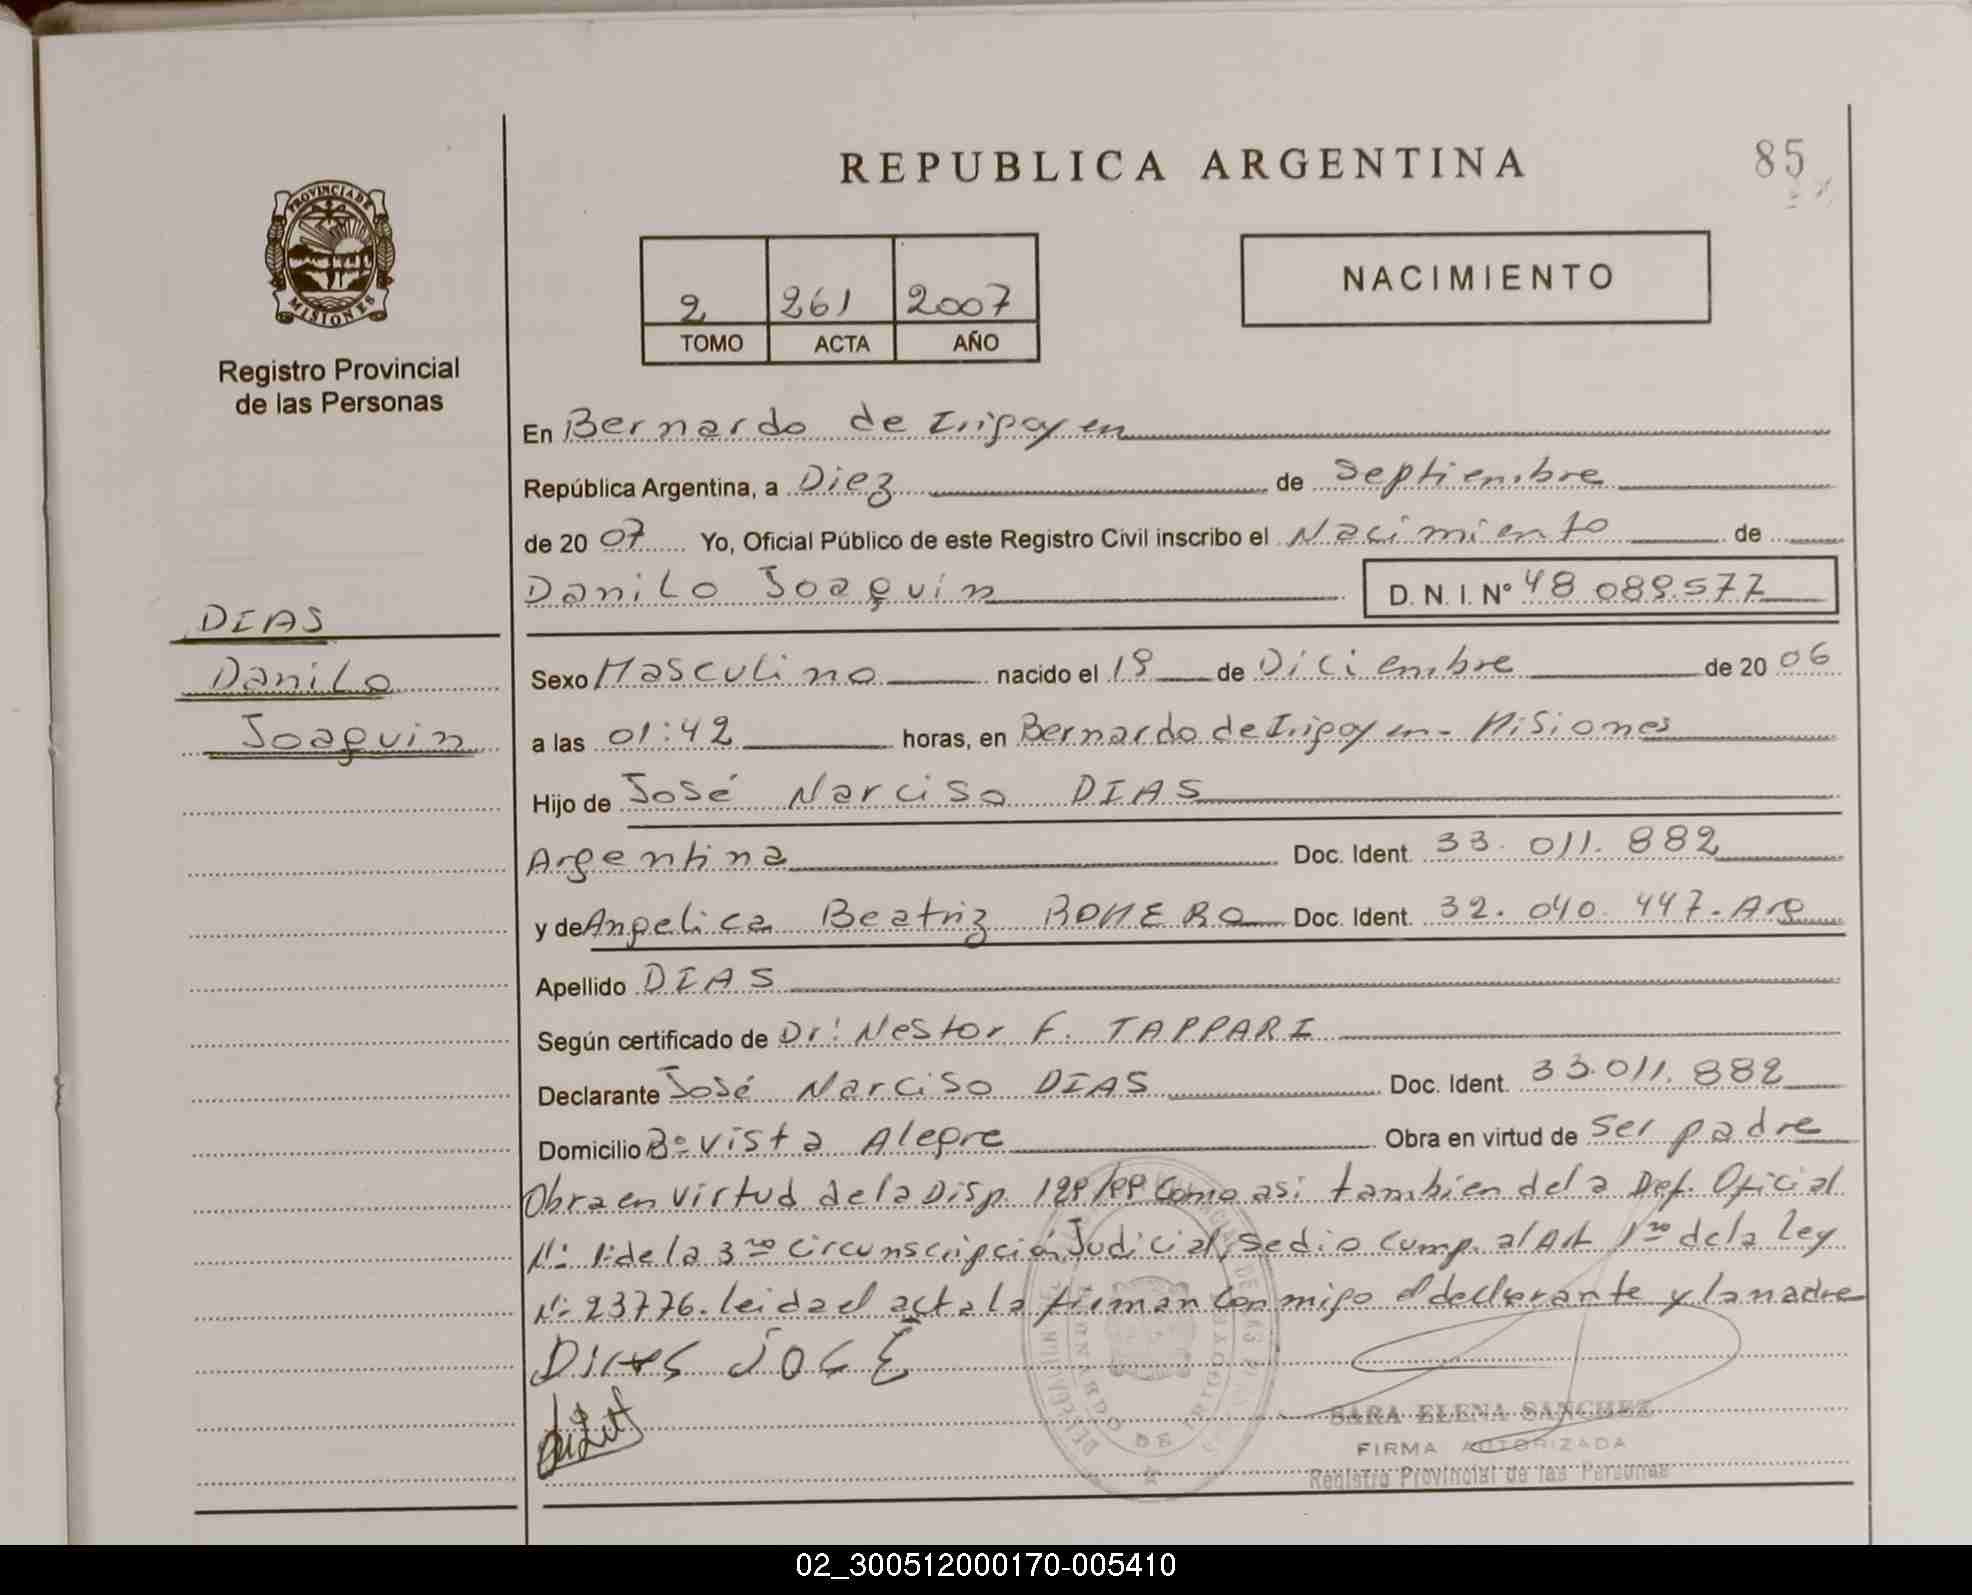 REPUBLICA ARGENTINA
85
PROVINCIA DE
MISIONES
Registro Provincial
de las Personas
2 261 2007
TOMO ACTA AÑO
NACIMIENTO
En Bernardo de Irigoyen
República Argentina, a Diez de Septiembre
de 2007 Yo, Oficial Público de este Registro Civil inscribo el Nacimiento de
Danilo Joaquín D. N. I. Nº 48.089.577
DIAS
Danilo
Joaquin
Sexo Masculino nacido el 19 de Diciembre de 2006
a las 01:42 horas, en Bernardo de Irigoyen - Misiones
Hijo de José Narciso DIAS
Argentina Doc. Ident. 33.011.882
y de Angelica Beatriz ROMERO Doc. Ident. 32.040.447. Arg
Apellido DIAS
Según certificado de Dr: Nestor F. TAPPARI
Declarante José Narciso DIAS Doc. Ident. 33.011.882
Domicilio Bº Vista Alegre Obra en virtud de Ser padre
Obra en virtud de la Disp. 129/99 como asi tambien de la Def. Oficial
Nº 1 de la 3ra Circunscripción Judicial, se dio cump. al Art 1ro de la Ley
Nº 23776. leida el acta la firman conmigo el declarante y la madre
Dias JOSE
SARA ELENA SANCHEZ
FIRMA AUTORIZADA
Registro Provincial de las Personas
02_300512000170-005410